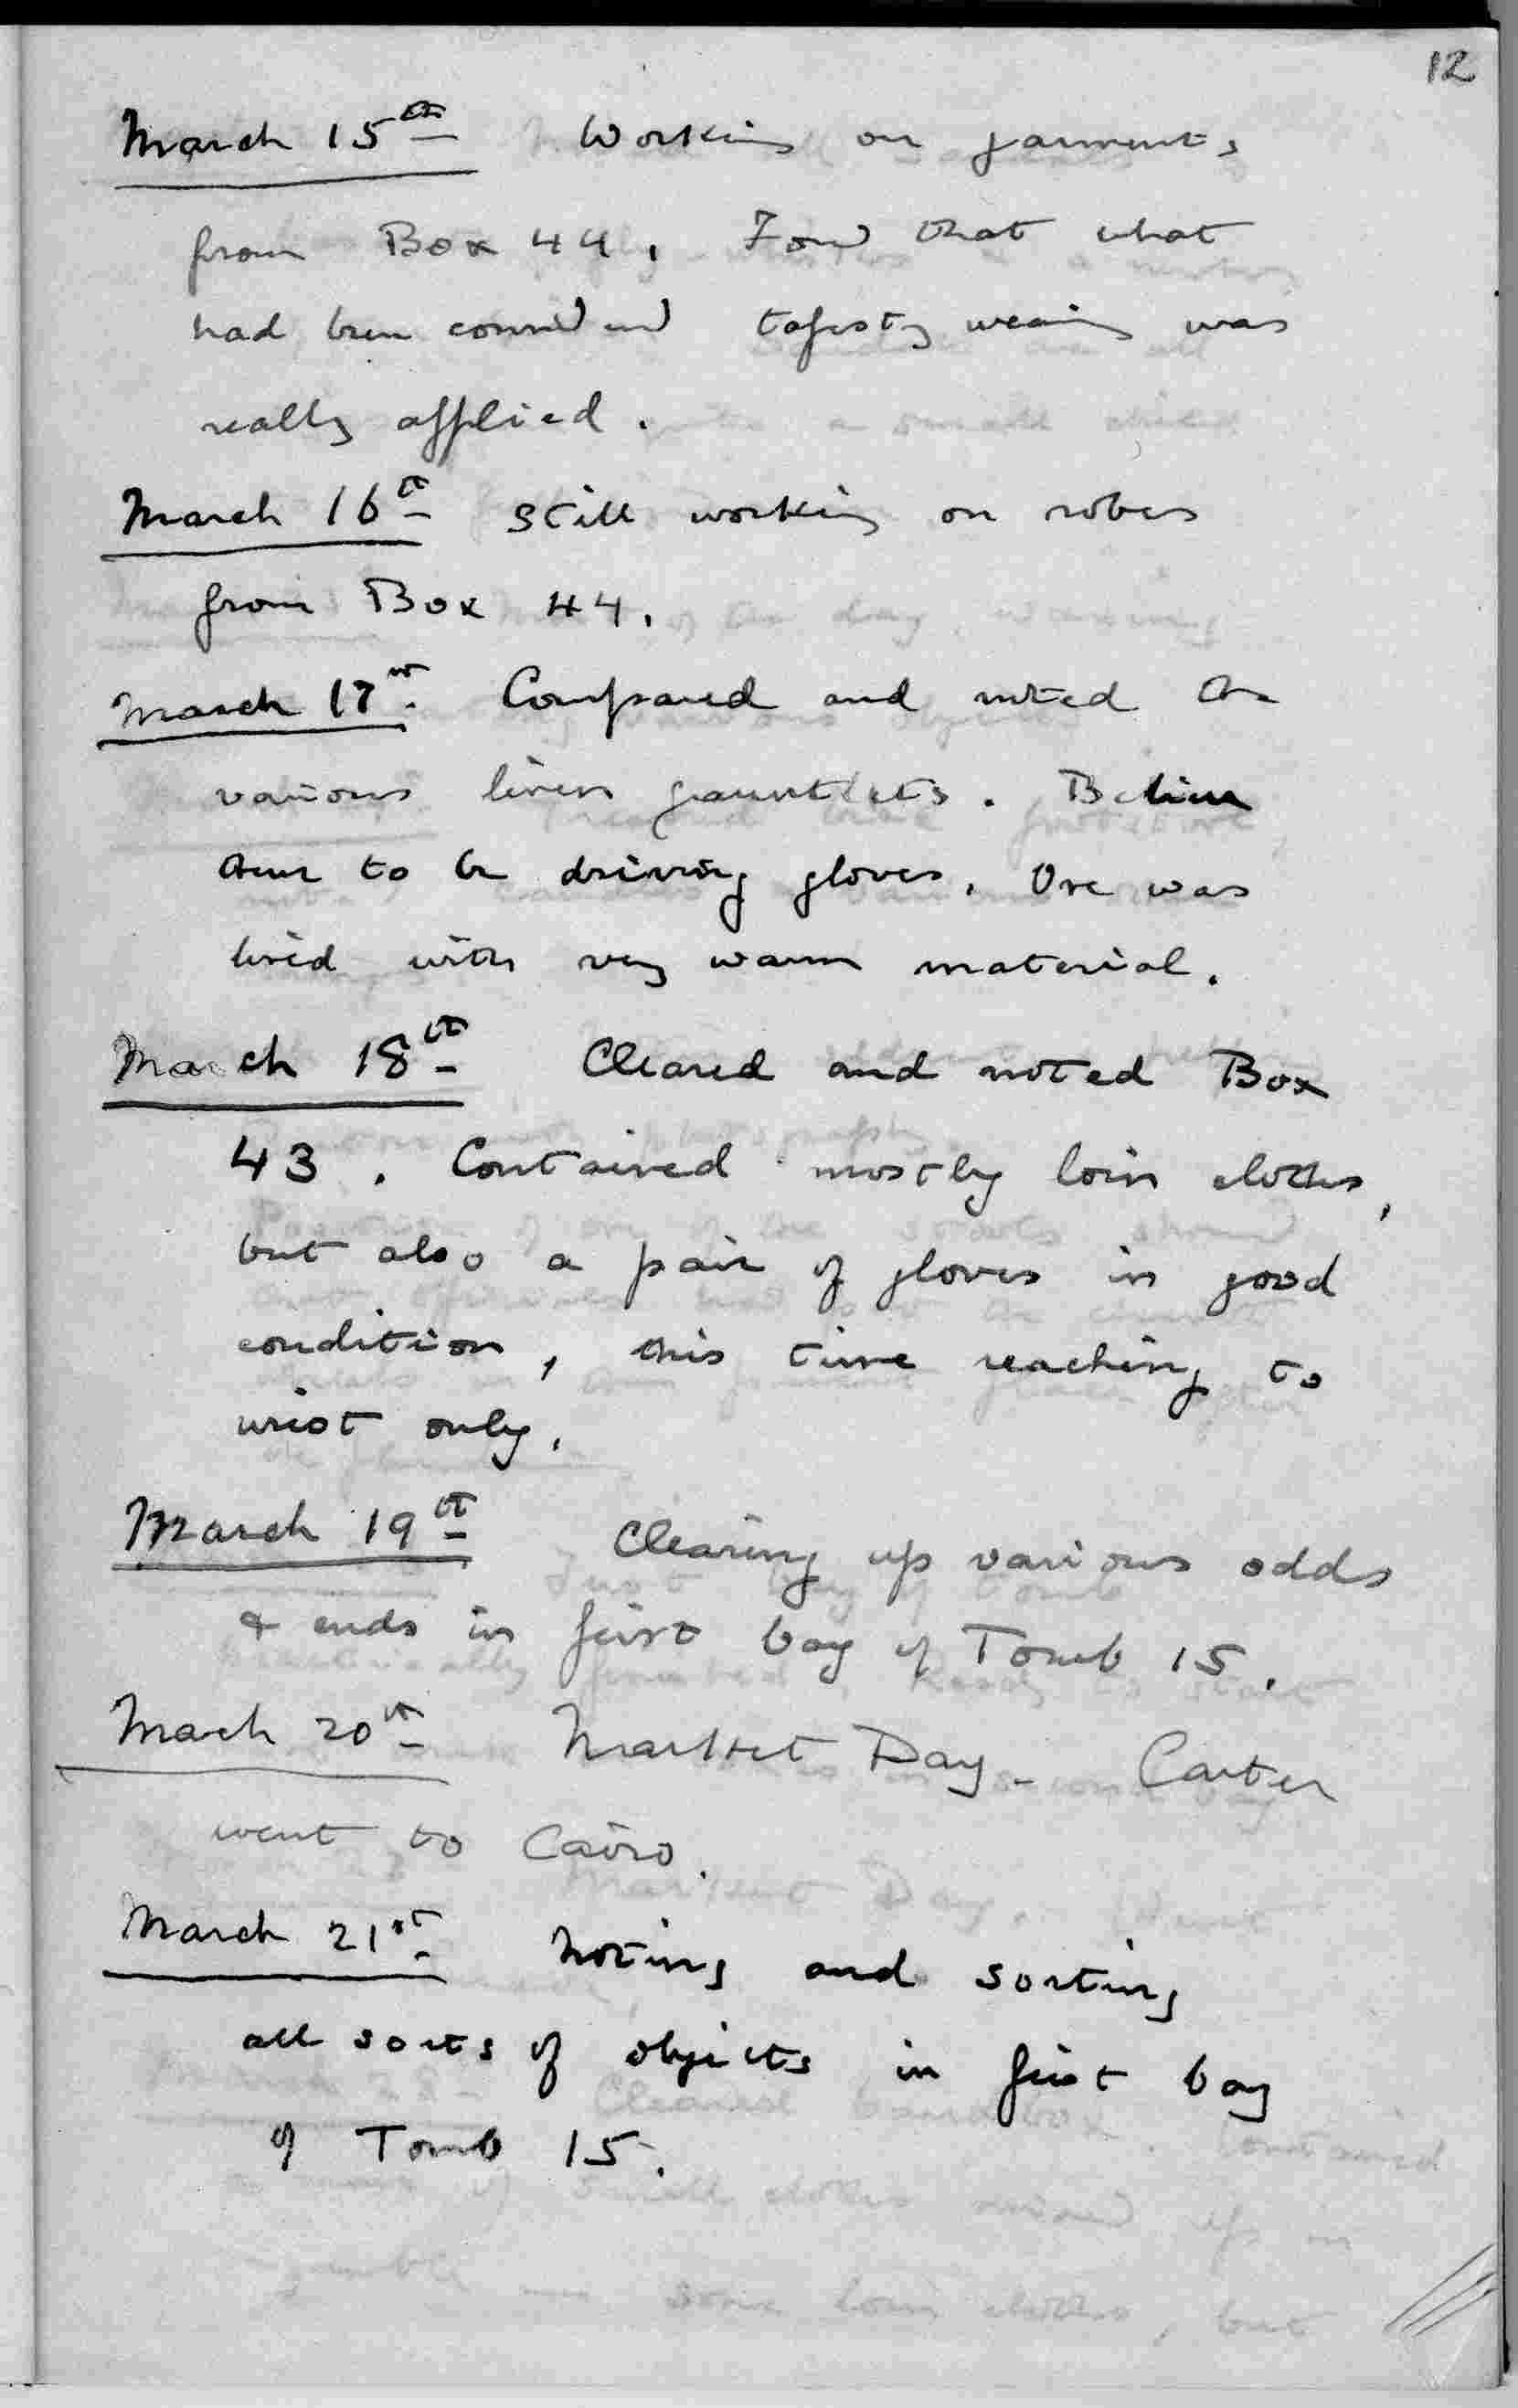 12
March 15th Working on garments
from Box 44. Found that what
had been considered tapestry weaving was
really applied.
March 16th Still working on robes
from Box 44.
March 17th. Compared and noted the
various linen gauntlets. Believe
them to be driving gloves. One was
lined with very warm material.
March 18th Cleared and noted Box
43. Contained mostly loin cloths,
but also a pair of gloves in good
condition, this time reaching to
wrist only.
March 19th Clearing up various odds
& ends in first bay of Tomb 15.
March 20th Market Day - Carter
went to Cairo.
March 21st. Noting and sorting
all sorts of objects in first bay
of Tomb 15.